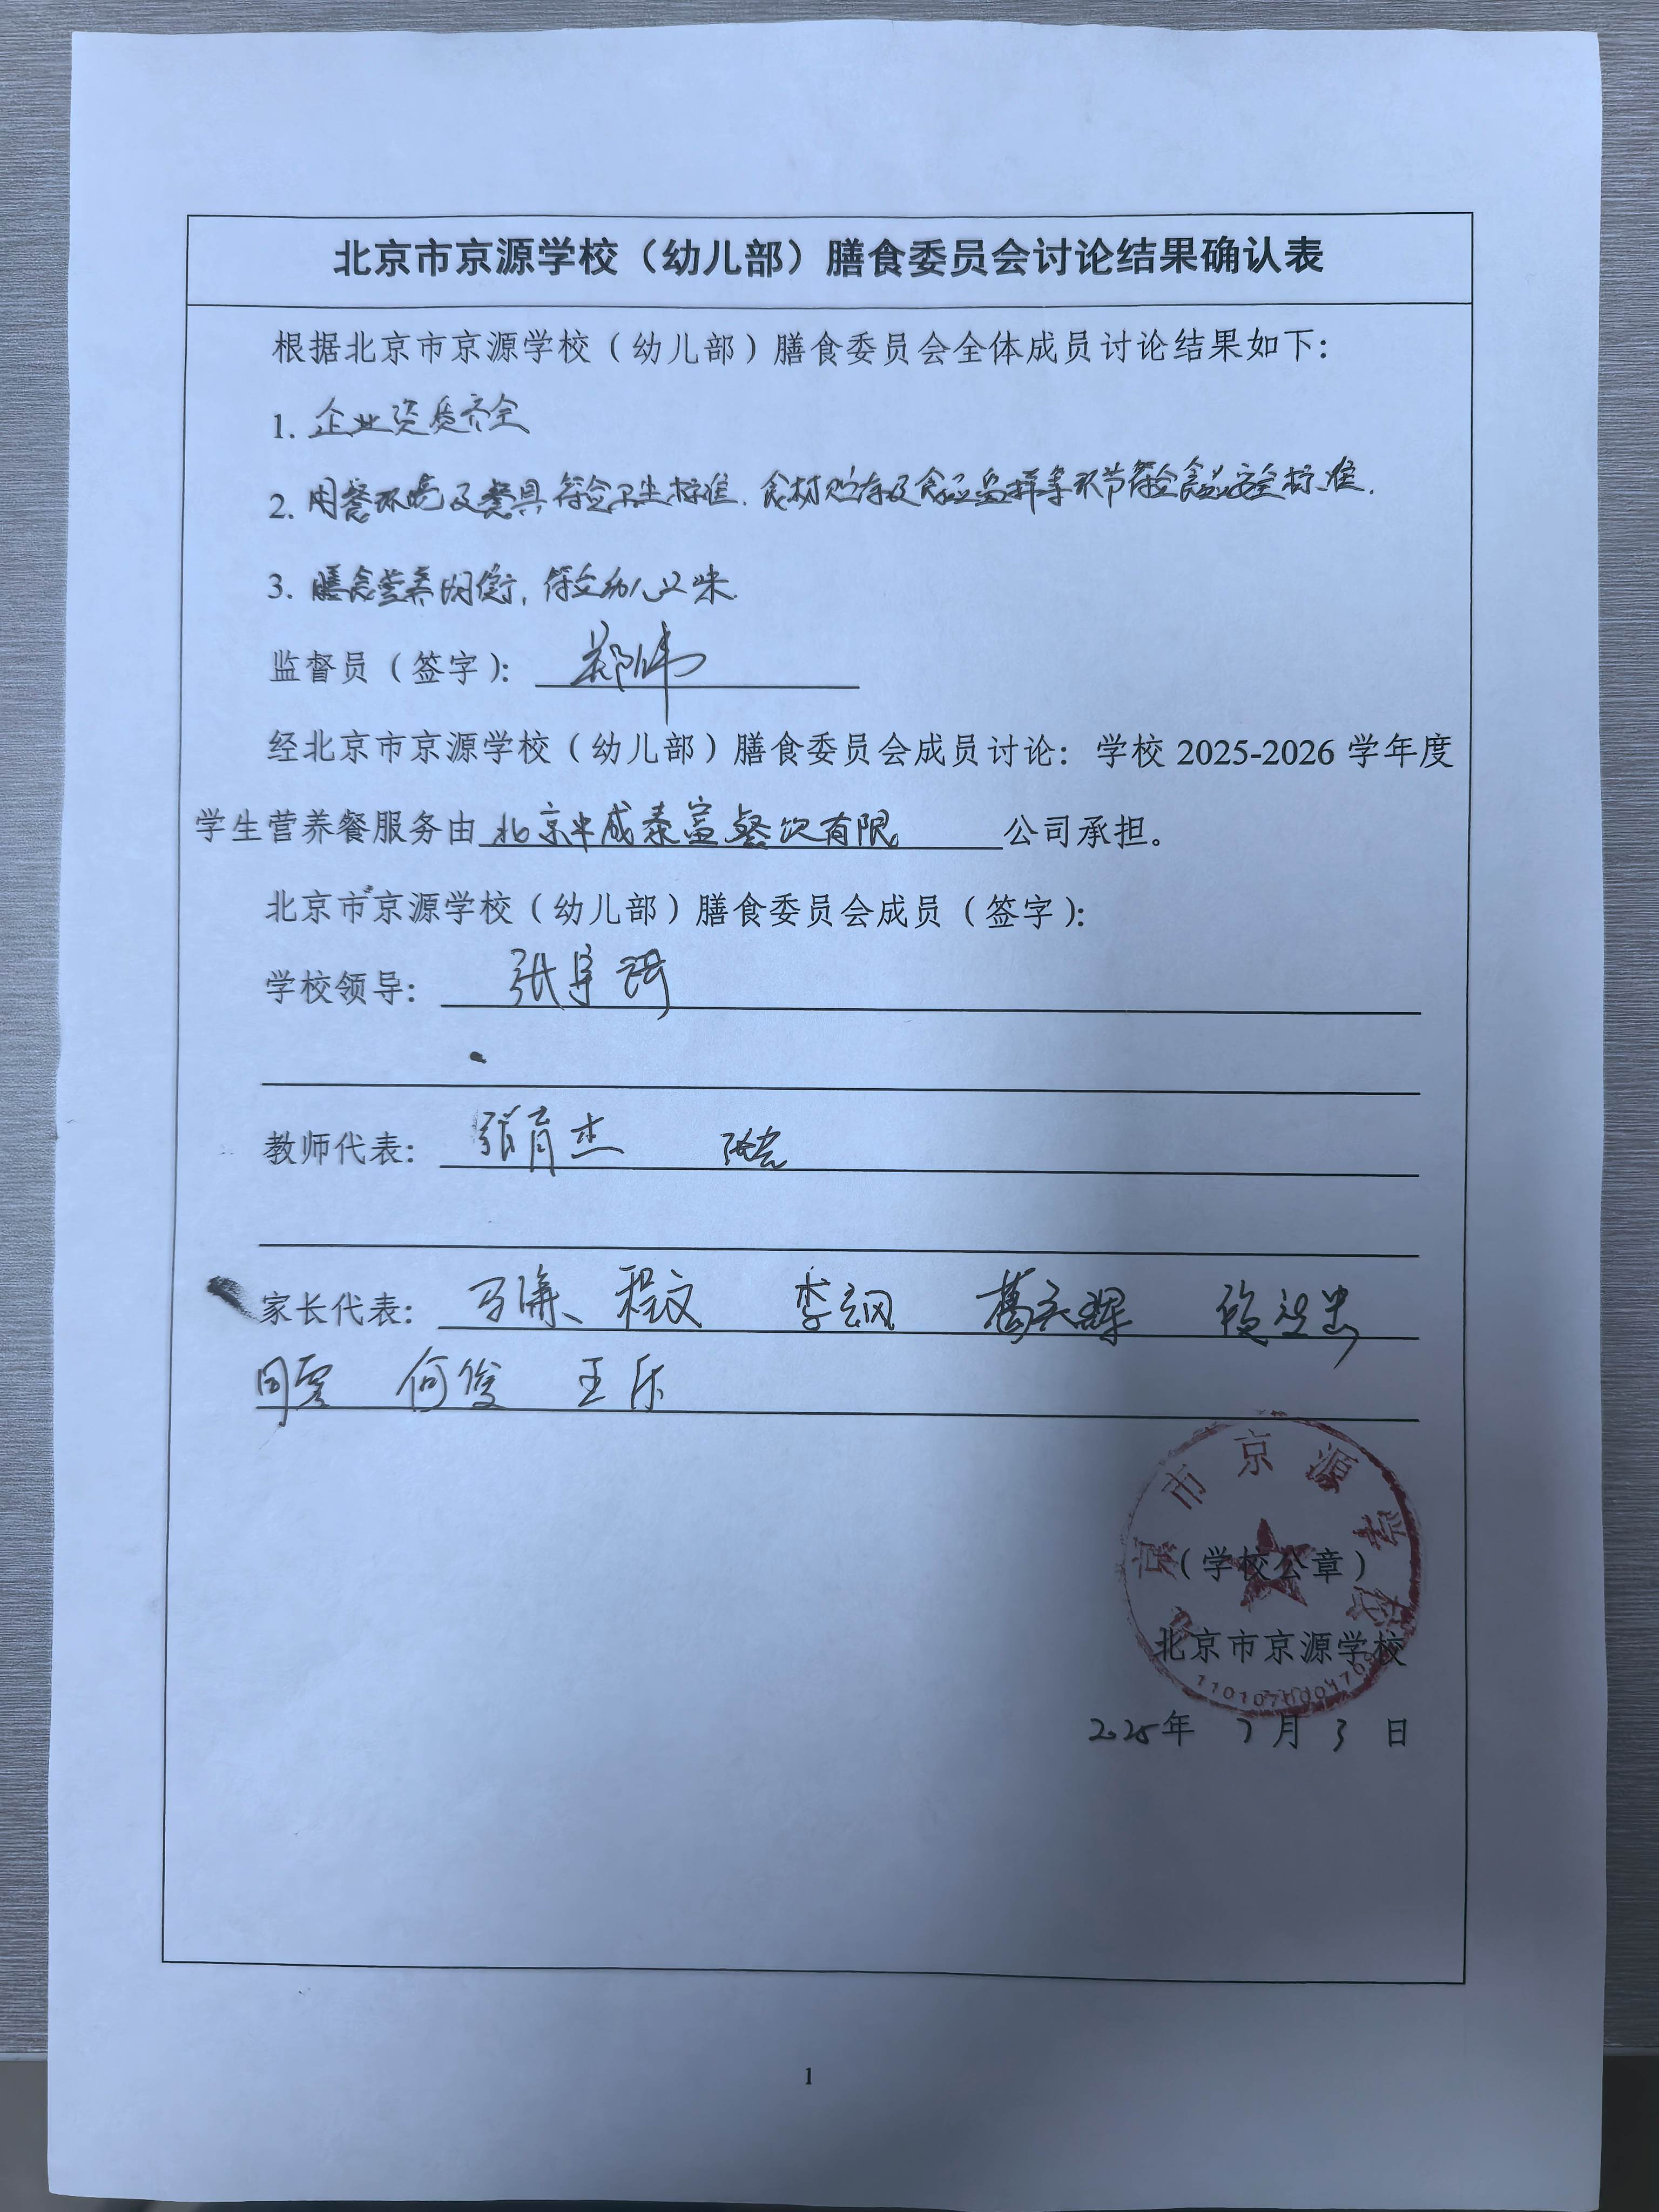 北京市京源学校（幼儿部）膳食委员会讨论结果确认表
根据北京市京源学校（幼儿部）膳食委员会全体成员讨论结果如下：
1. 企业资质齐全
2. 用餐环境及餐具符合卫生标准. 食材贮存及食品留样等环节符合食品安全标准.
3. 膳食营养均衡, 符合幼儿口味.
监督员（签字）： 郑伟
经北京市京源学校（幼儿部）膳食委员会成员讨论：学校 2025-2026 学年度
学生营养餐服务由 北京中成泰富餐饮有限 公司承担。
北京市京源学校（幼儿部）膳食委员会成员（签字）：
学校领导：
教师代表： 张育杰
家长代表： 程文
何俊 王乐
京市京源学校
（学校公章）
北京市京源学校
2025年 7月 3 日
1